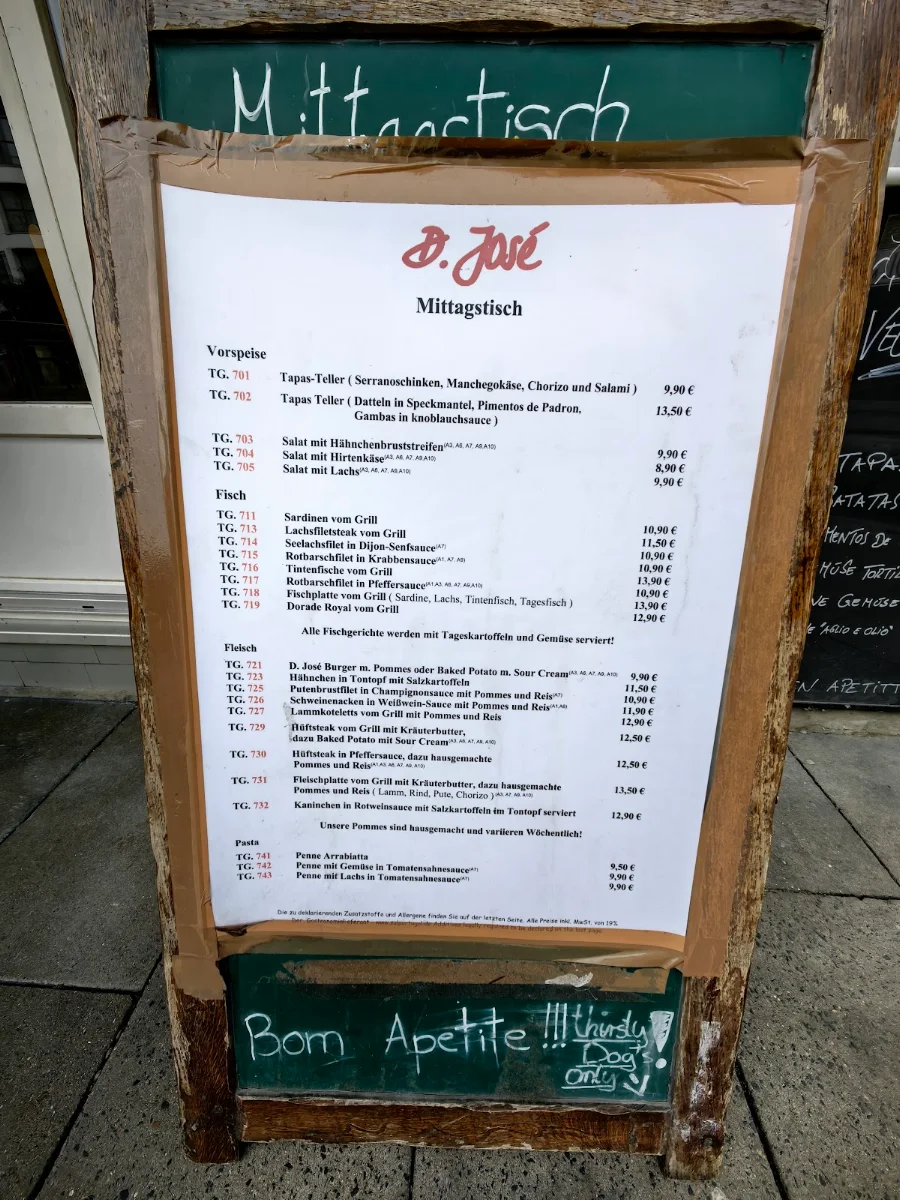 Mittagstisch
D. José
Mittagstisch
Vorspeise
TG. 701 Tapas-Teller ( Serranoschinken, Manchegokäse, Chorizo und Salami ) 9,90 €
TG. 702 Tapas Teller ( Datteln in Speckmantel, Pimentos de Padron, 13,50 €
Gambas in knoblauchsauce )
TG. 703 Salat mit Hähnchenbruststreifen(A3, A6, A7, A9,A10) 9,90 €
TG. 704 Salat mit Hirtenkäse(A3, A6, A7, A9,A10) 8,90 €
TG. 705 Salat mit Lachs(A3, A6, A7, A9,A10) 9,90 €
Fisch
TG. 711 Sardinen vom Grill 10,90 €
TG. 713 Lachsfiletsteak vom Grill 11,50 €
TG. 714 Seelachsfilet in Dijon-Senfsauce(A7) 10,90 €
TG. 715 Rotbarschfilet in Krabbensauce(A1, A7, A9) 10,90 €
TG. 716 Tintenfische vom Grill 13,90 €
TG. 717 Rotbarschfilet in Pfeffersauce(A1,A3, A6, A7, A9,A10) 10,90 €
TG. 718 Fischplatte vom Grill ( Sardine, Lachs, Tintenfisch, Tagesfisch ) 13,90 €
TG. 719 Dorade Royal vom Grill 12,90 €
Alle Fischgerichte werden mit Tageskartoffeln und Gemüse serviert!
Fleisch
TG. 721 D. José Burger m. Pommes oder Baked Potato m. Sour Cream(A3, A6, A7, A9, A10) 9,90 €
TG. 723 Hähnchen in Tontopf mit Salzkartoffeln 11,50 €
TG. 725 Putenbrustfilet in Champignonsauce mit Pommes und Reis(A7) 10,90 €
TG. 726 Schweinenacken in Weißwein-Sauce mit Pommes und Reis(A1,A9) 11,90 €
TG. 727 Lammkoteletts vom Grill mit Pommes und Reis 12,90 €
TG. 729 Hüftsteak vom Grill mit Kräuterbutter,
dazu Baked Potato mit Sour Cream(A3, A6, A7, A9, A10) 12,50 €
TG. 730 Hüftsteak in Pfeffersauce, dazu hausgemachte
Pommes und Reis(A1,A3, A6, A7, A9, A10) 12,50 €
TG. 731 Fleischplatte vom Grill mit Kräuterbutter, dazu hausgemachte
Pommes und Reis ( Lamm, Rind, Pute, Chorizo )(A3, A7, A9, A10) 13,50 €
TG. 732 Kaninchen in Rotweinsauce mit Salzkartoffeln im Tontopf serviert 12,90 €
Unsere Pommes sind hausgemacht und variieren Wöchentlich!
Pasta
TG. 741 Penne Arrabiatta 9,50 €
TG. 742 Penne mit Gemüse in Tomatensahnesauce(A7) 9,90 €
TG. 743 Penne mit Lachs in Tomatensahnesauce(A7) 9,90 €
Die zu deklarierenden Zusatzstoffe und Allergene finden Sie auf der letzten Seite. Alle Preise inkl. MwSt. von 19%
Bom Apetite !!!
thirsty
Dog's
only
TAPA
BATATAS
MENTOS DE
MÜSE TORTIL
GEMÜSE
"AGLIO E OLIO"
N APETIT